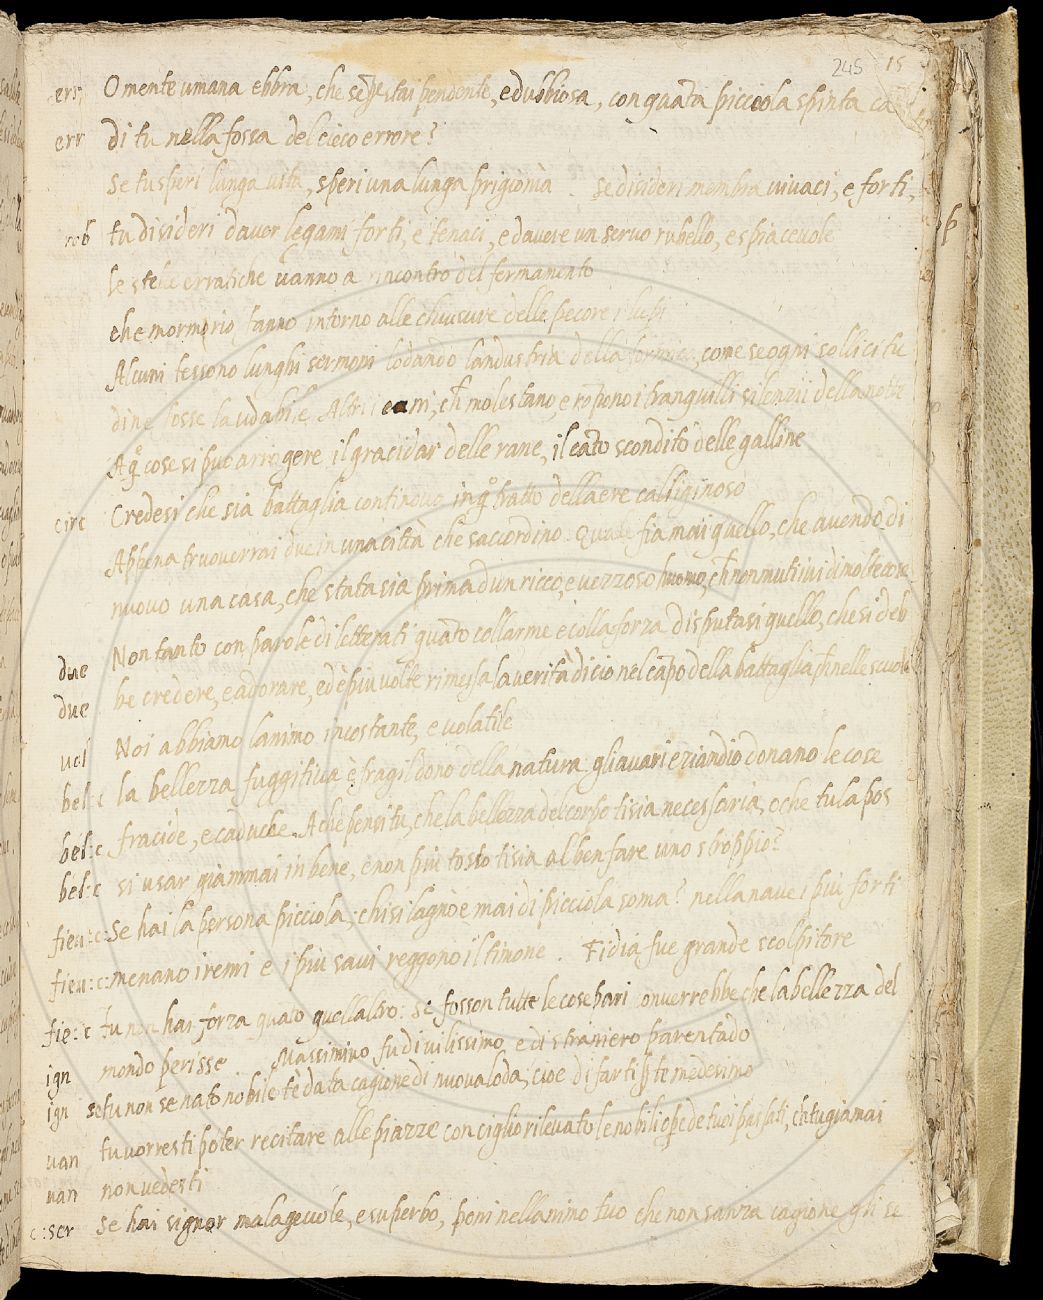 245 15
ers O mente umana ebbra, che sẽpre stai pendente, e dubbiosa, con quãta piccola spinta ca
err di tu nella fossa del cieco errore?
Se tu speri lunga vita, speri una lunga prigionia se disideri membra vivaci, e forti,
rob tu disideri daver legami forti, e tenaci, e davere un servo rubello, e spiacevole
le stelle erratiche vanno a rincontro del fermamento
che mormorio fanno intorno alle chiusure delle pecore i lupi
Alcuni tessono lunghi sermoni lodando landustria della formica, come se ogni sollicitu
dine fosse laudabile. Altri cani, ch̃ molestano, e rõpono i tranquilli silenzii della notte
A q̃ cose si puo arrogere il gracidar delle rane, il cãto scondito delle galline
circ Credesi che sia battaglia continova in q̃o tratto dellaere caliginoso
Appena truoverrai due in una città che saccordino. Quale fia mai quello, che avendo di
nuovo una casa, che stata sia prima dun ricco, e vezzoso huomo, ch̃ non muti ivi di molte cose
due Non tanto con parole di letterati quãto collarme e colla forza disputasi quello, che si deb
due be credere, e adorare, ed è piu volte rimessa la verità dicio nel cãpo della battaglia, ch̃ nelle scuole
vol Noi abbiamo lanimo incostante, e volatile
bel:c la bellezza fuggitiva è fragil dono della natura gliavari eziandio donano le cose
bel:c fracide, e caduche. A che pensi tu, che la bellezza del corpo ti sia necessaria, o che tu la pos
bel:c si usar giammai in bene, e non piu tosto ti sia al ben fare uno stroppio?
fieu:c: Se hai la persona piccola; chi si lagnò e mai di piccola soma? nella nave i piu forti
fieu:c: menano i remi e i piu savi reggono il timone. Fidia fue grande scolpitore
fie:c tu non hai forza quãto quellaltro: Se fosson tutte le cose pari converrebbe che la bellezza del
ign mondo perisse Massimino fu di vilissimo, e di straniero parentado
ign se tu non se nato nobile, tè data cagione di nuova loda; cioe di farti p te medesimo
van tu vorresti poter recitare alle piazze con ciglio rilevato le nobili op̃e de tuoi passati, ch tu giamai
van non vedesti
c:ser Se hai signor malagevole, e superbo, poni nellanimo tuo che non sanza cagione gli se